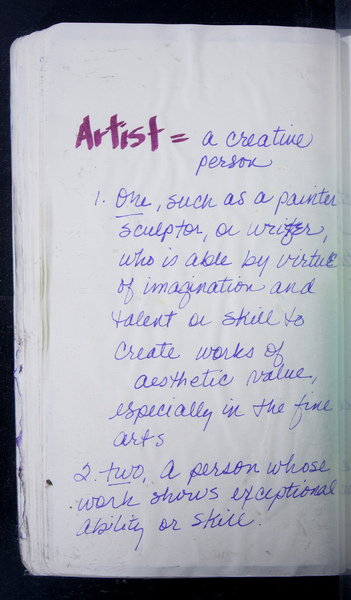 Artist = a creative
person
1. One, such as a painter
sculptor, or writer,
who is able by virtue
of imagination and
talent or skill to
create works of
aesthetic value,
especially in the fine
arts
2. two, a person whose
work shows exceptional
ability or skill.